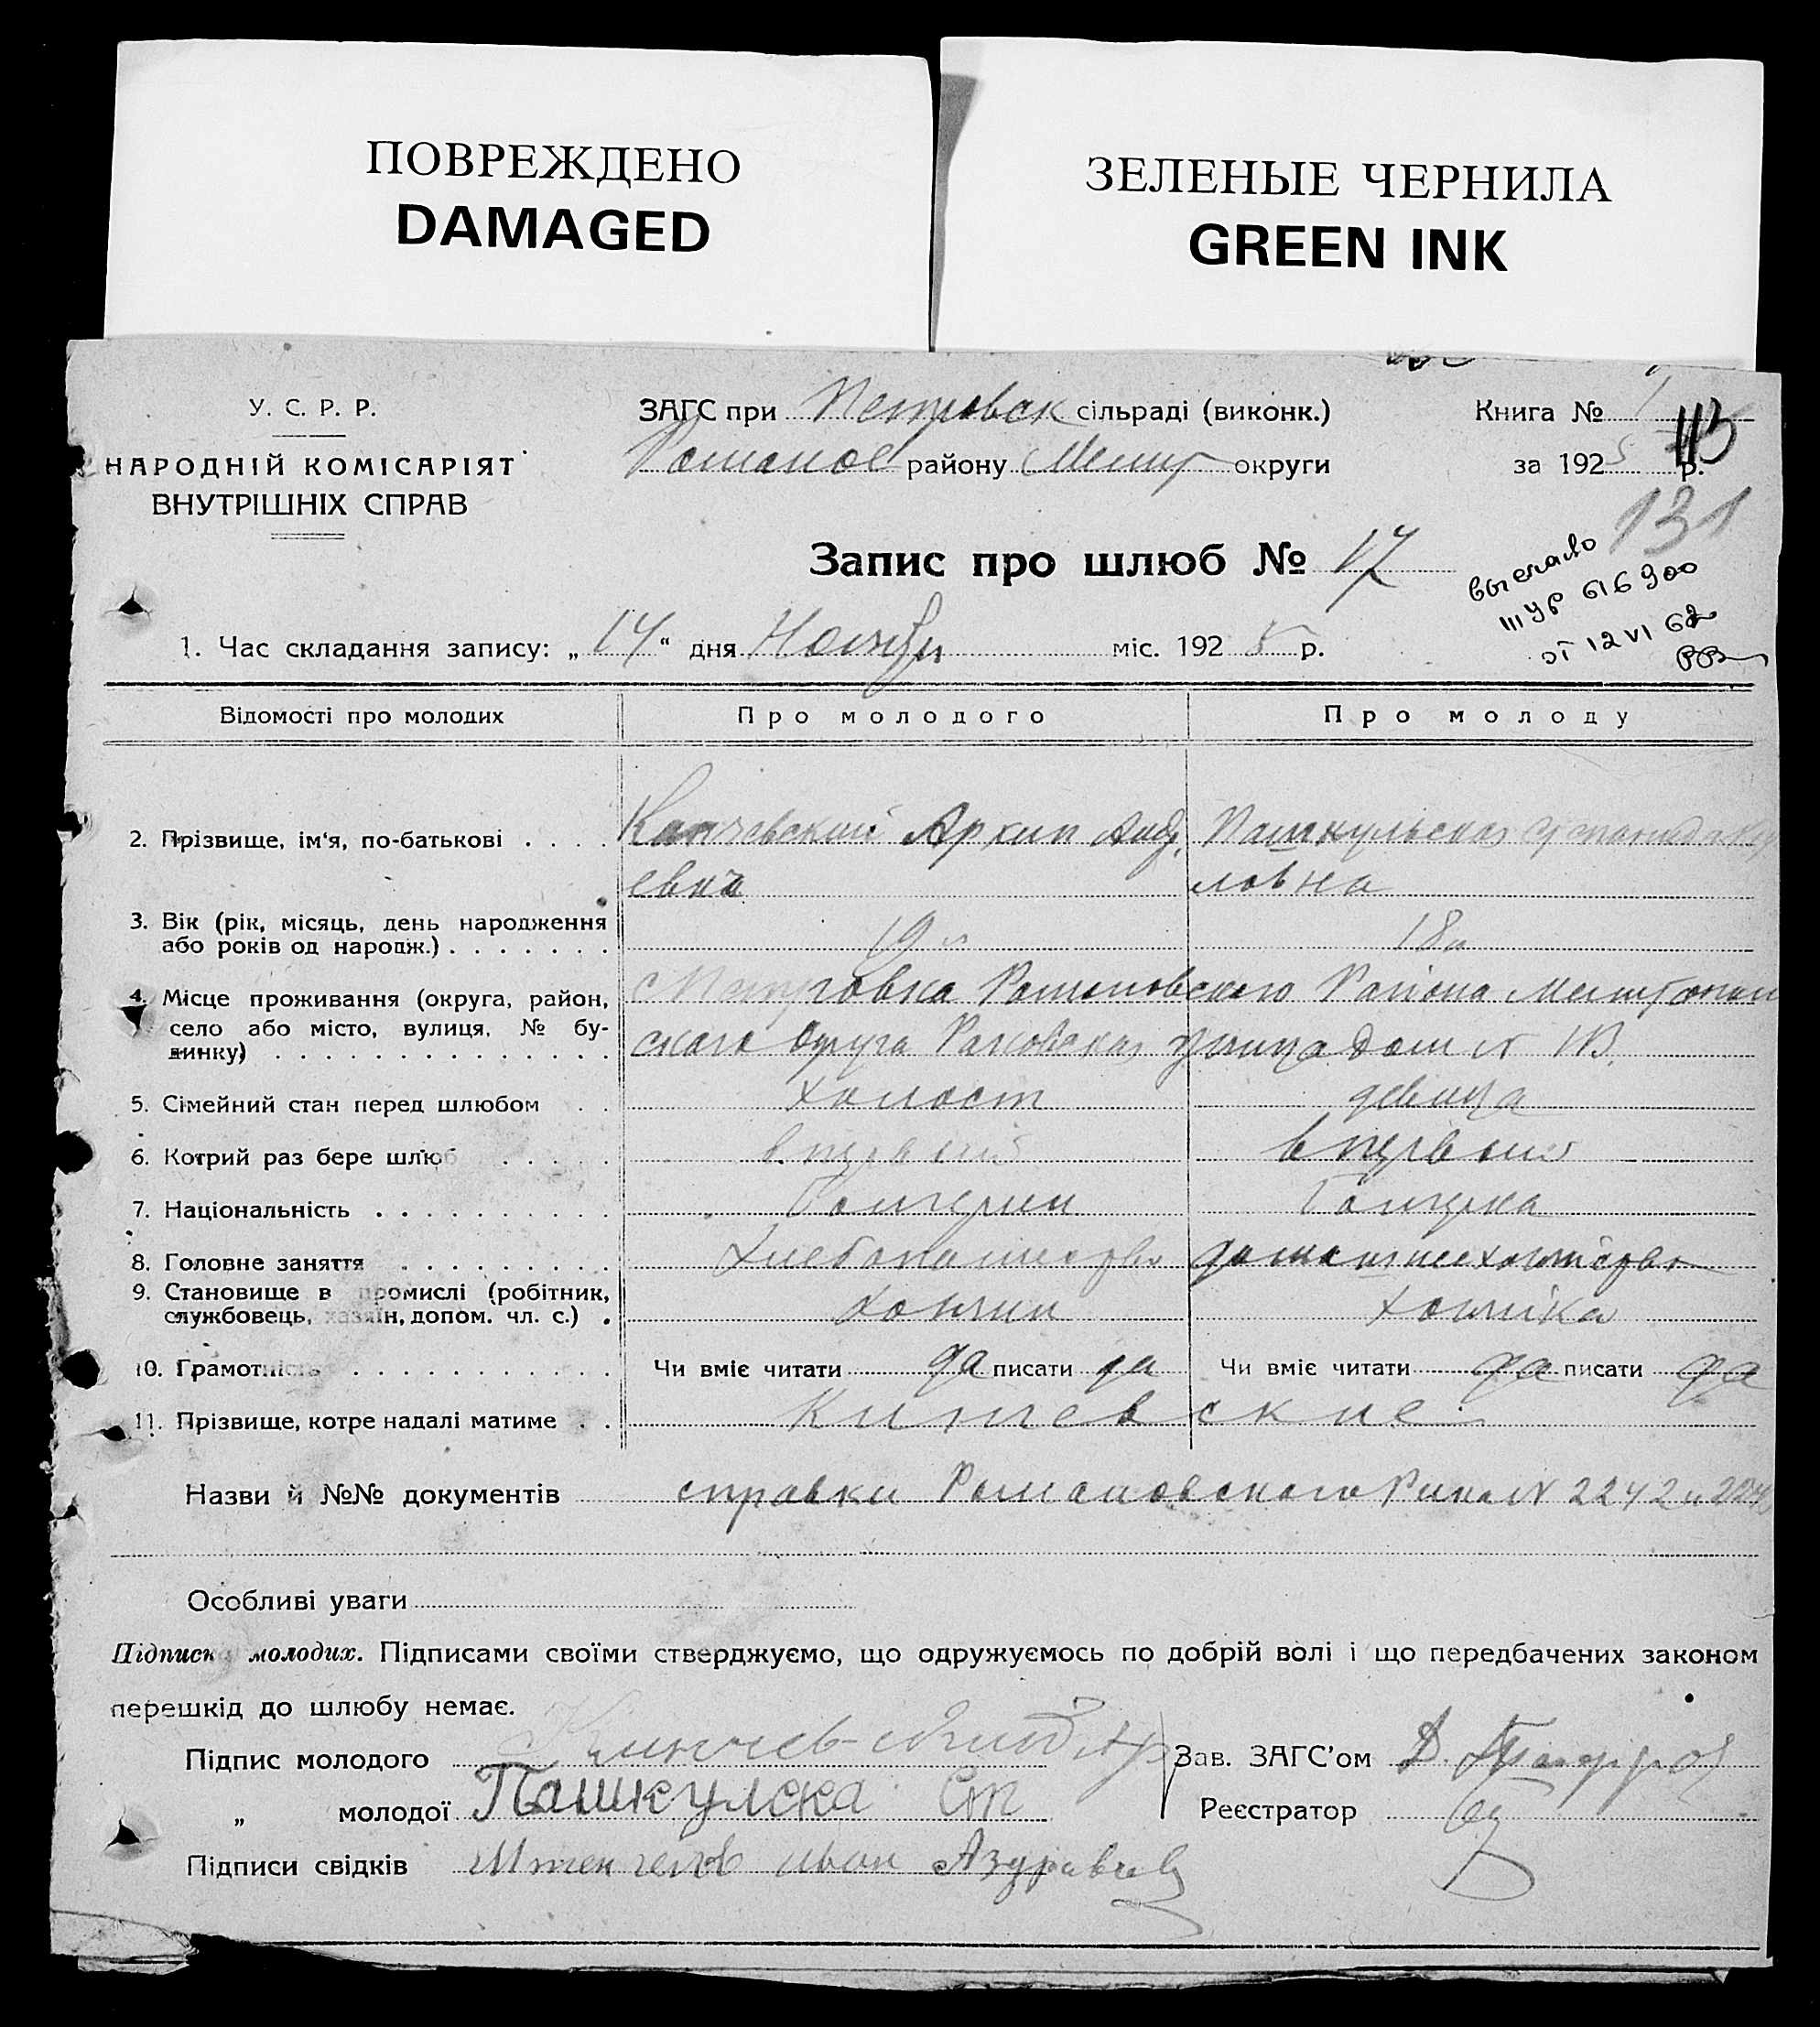 ПОВРЕЖДЕНО
DAMAGED
ЗЕЛЕНЫЕ ЧЕРНИЛА
GREEN INK
У. С. Р. Р.
НАРОДНІЙ КОМІСАРІЯТ
ВНУТРІШНІХ СПРАВ
ЗАГС при Петровск сільраді (виконк.)
Романов району Мелит округи
Книга № 1
113
за 1925 р.
131
Запис про шлюб № 17
выслало
III УР 616900
от 12 VI 62
1. Час складання запису: „14“ дня Ноября міс. 1925 р.
Відомості про молодих Про молодого Про молоду
2. Прізвище, ім'я, по-батькові . . . . Архип Андр Пашкульская
евич ловна
3. Вік (рік, місяць, день народження
або років од народж.) . . . . . . . 19 л 18 л
4. Місце проживання (округа, район, с Петровка Романовского Района Мелитополь
село або місто, вулиця, № бу-
динку) . . . . . . . . . . . . . . ского Округа улица дом №
5. Сімейний стан перед шлюбом . . холост девица
6. Котрий раз бере шлюб . . . . . в первый в первый
7. Національність . . . . . . . . . . Болгарин Болгарка
8. Головне заняття . . . . . . . . . Хлебопашество домашнее хозяйство
9. Становище в промислі (робітник,
службовець, хазяїн, допом. чл. с.) . Хозяин Хозяйка
10. Грамотність . . . . . . . . . . . Чи вміє читати да писати да Чи вміє читати да писати да
11. Прізвище, котре надалі матиме . .
Назви й №№ документів справки Романовского Рика № 2242 и
Особливі уваги
Підписка молодих. Підписами своїми стверджуємо, що одружуємось по добрій волі і що передбачених законом
перешкід до шлюбу немає.
Підпис молодого Ар Зав. ЗАГС'ом Д.
„ молодої Пашкулска Ст Реєстратор
Підписи свідків иван